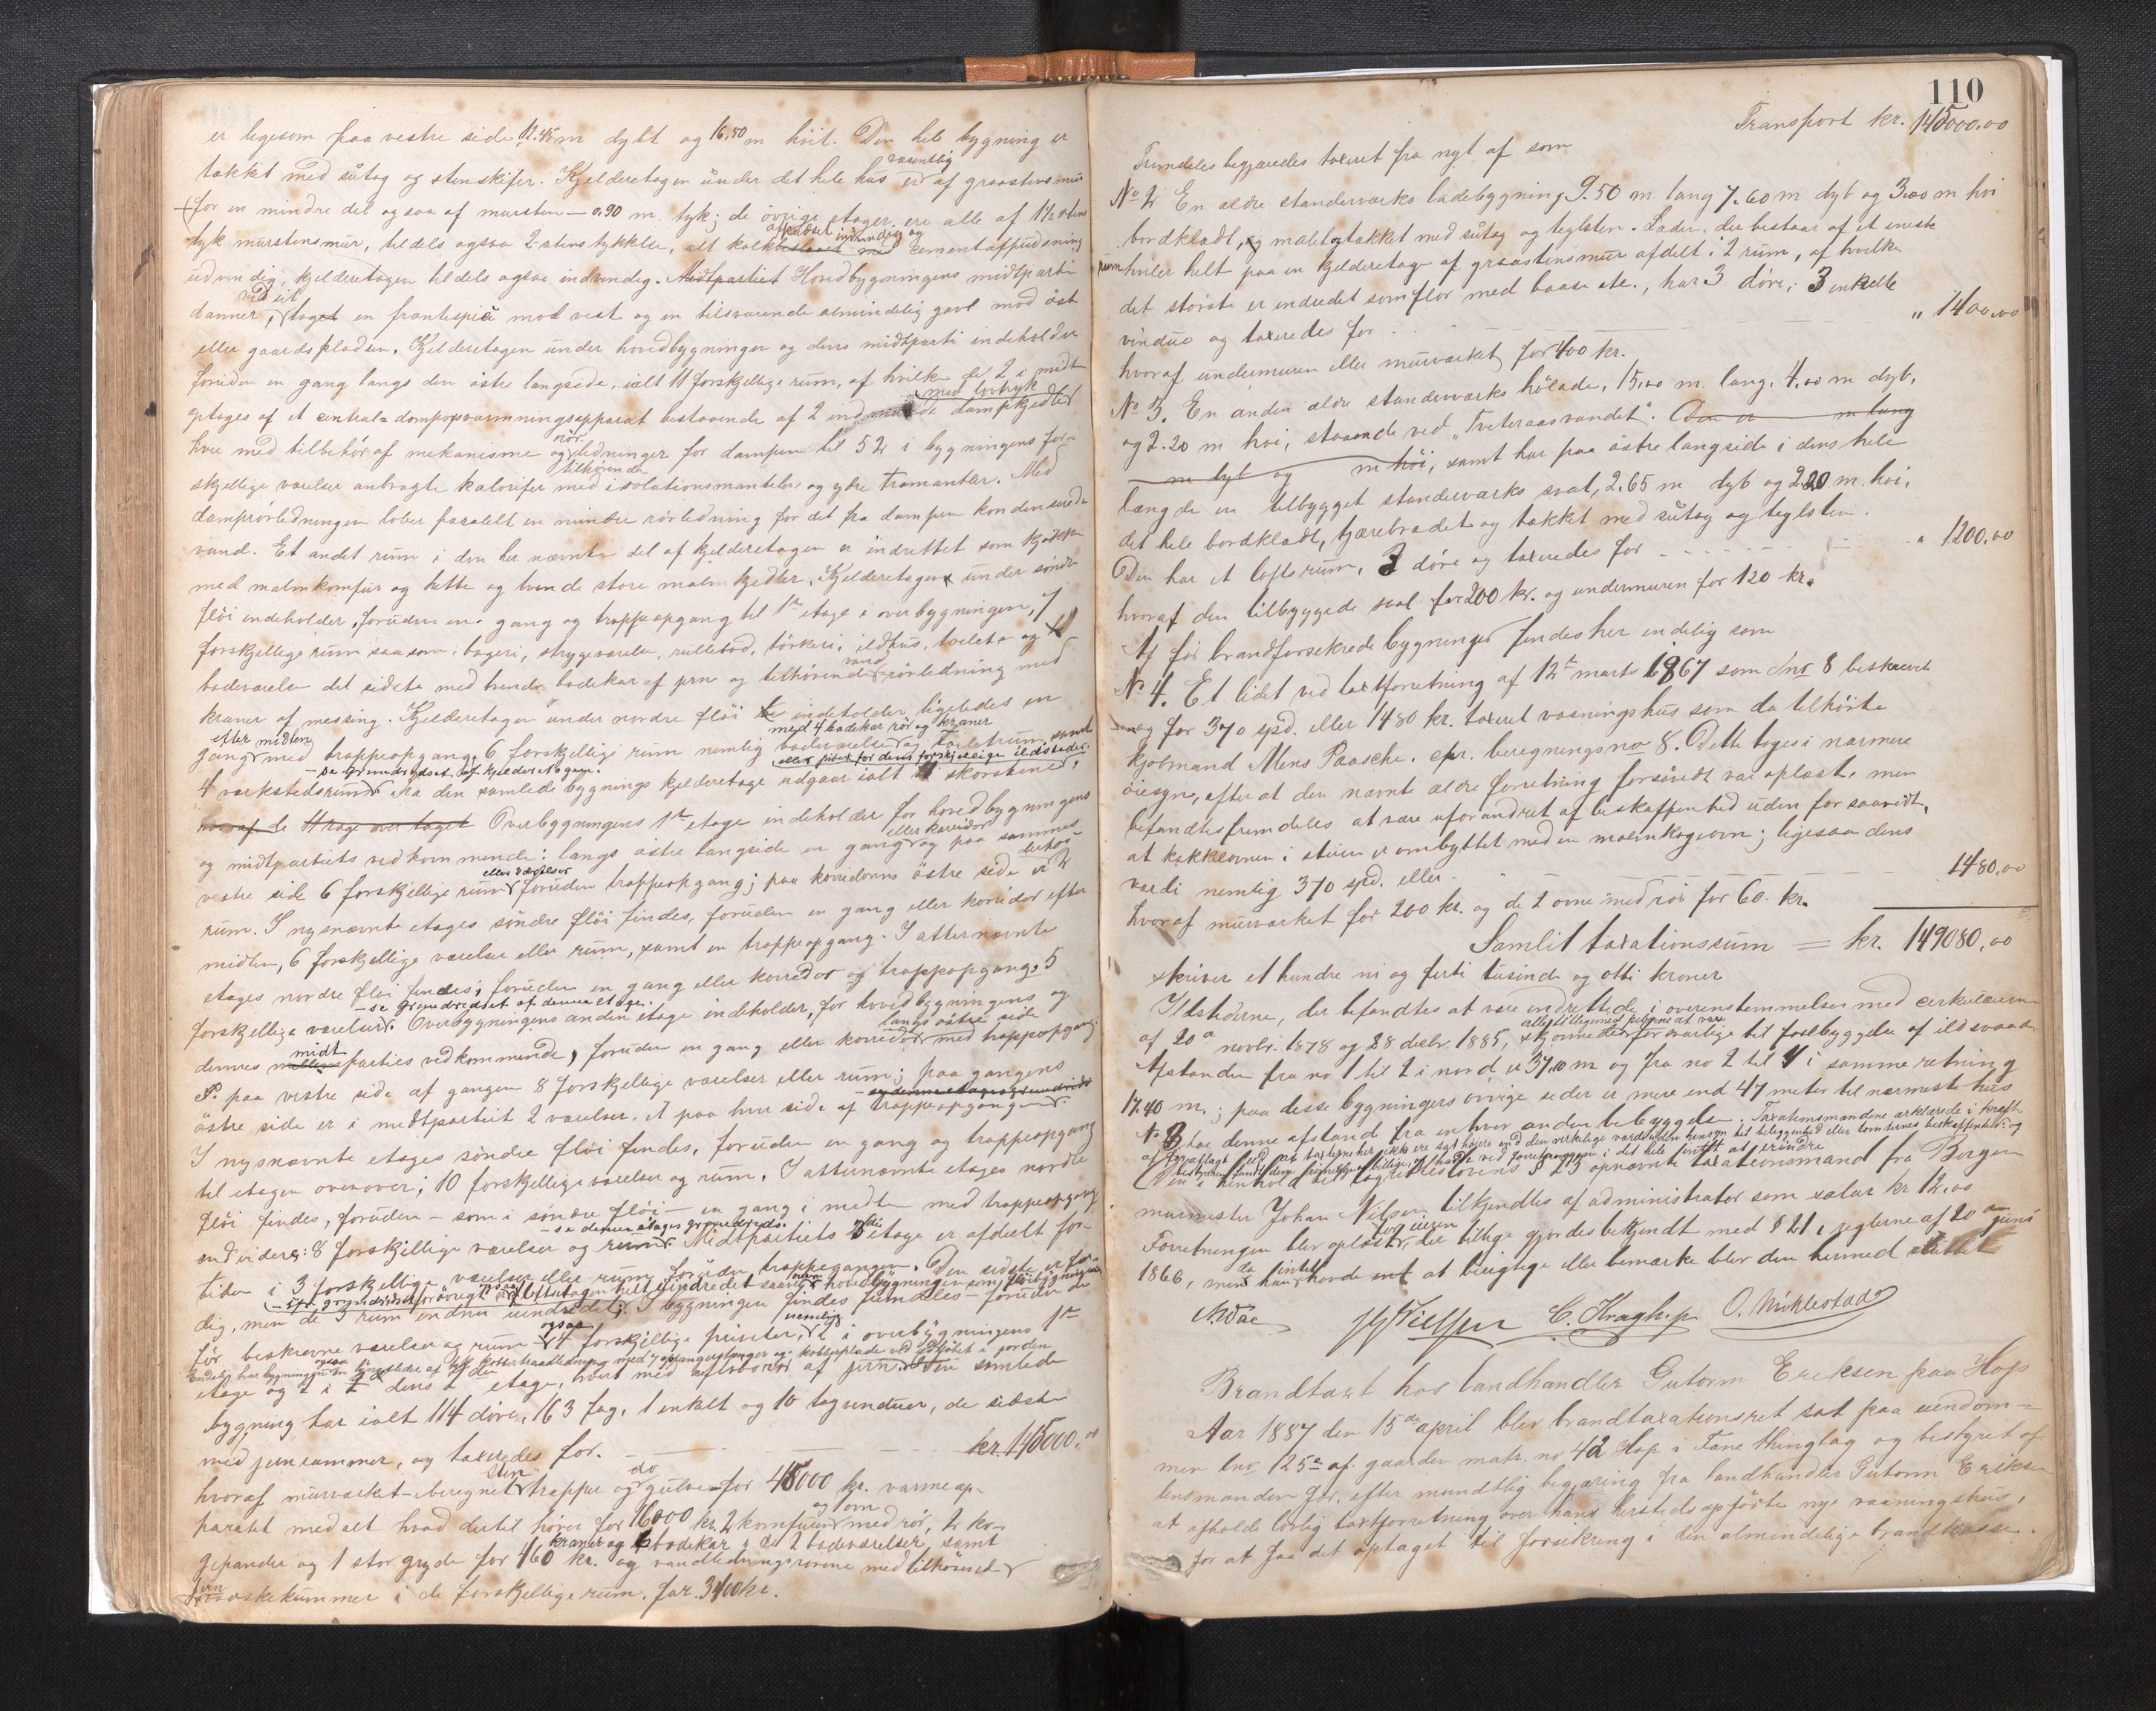 er ligesom paa vestre side 12.45 m dybt og 16.50 m höit. Den hele bygning er
tækket med sutag og stenskifer. Kjelderetagen under det hele hus er væsentlig af graastensmur
for en mindre del ogsaa af mursten – 0.90 m. tyk; de övrige etager ere alle af 1½ stens
tyk murstensmur, tildels ogsaa 2 stens tykkelse, alt kalk afpudset indvendig og cementafpudsning
udvendig, kjelderetagen tildels ogsaa indvendig. Midtpartiet Hovedbygningens midtparti
danner, ved sit taget en frontespice mod vest og en tilsvarende almindelig gavl mod öst
eller gaardspladsen. Kjelderetagen under hovedbygningen og dens midtparti indeholder
foruden en gang langs den östre langside, ialt 11 forskjellige rum, af hvilke 2 i midten
optages af et central-dampopvarmningsapparat bestaaende af 2 dampkjedler med lavtryk
hver med tilbehör af mekanisme og rör ledninger for dampen til 52 i bygningens for-
skjellige værelser anbragte kalorifer med tilhörende isolationsmantel og ydre træmantler. Med
damprörledningen löber paralelt en mindre rörledning for det fra dampen kondenserede
vand. Et andet rum i den her nævnte del af kjelderetagen er indrettet som kjökken
med malmkomfur og hette og tvende store malmkjedler. Kjelderetagen under söndre
flöi indeholder, foruden en gang og trappeopgang til 1ste etage i overbygningen, 7
forskjellige rum saasom: bageri, strygeværelse, rullebod, törkeri, ildhus, toilet og
badeværelse det sidste med tvende badekar af jern og tilhörende vand rörledning med
kraner af messing. Kjelderetagen under nordre flöi indeholder ligeledes en
gang efter midten med trappeopgang, 6 forskjellige rum nemlig badeværelse med 4 badekar rör og kraner og toiletrum samt
4 værkstedsrum – se grundridset af kjelderetagen. Fra den samlede bygnings kjelderetage udgaar ialt skorstene, eller piber for dens forskjellige ildsteder.
hvoraf de 11 rage over taget Overbygningens 1ste etage indeholder for hovedbygningens
og midtpartiets vedkommende: langs östre langside en gang eller korridor og paa sammes
vestre side 6 forskjellige rum eller værelser foruden trappeopgang; paa korridorens östre side er desuden 2
rum. I nysnævnte etages söndre flöi findes, foruden en gang eller korridor efter
midten, 6 forskjellige værelser eller rum, samt en trappeopgang. I atternævnte
etages nordre flöi findes, foruden en gang eller korridor og trappeopgang, 5
forskjellige værelser – se grundridset af denne etage. Overbygningens anden etage indeholder, for hovedbygningens og
dennes midtparties vedkommende, foruden en gang eller korridor langs östre side med trappeopgang:
paa vestre side af gangen 8 forskjellige værelser eller rum; paa gangens
östre side er i midtpartiet 2 værelser, et paa hver side af trappeopgangen – se denne etages grundrids
I nysnævnte etages söndre flöi findes, foruden en gang og trappeopgang
til etagen ovenover; 10 forskjellige værelser og rum. I atternævnte etages nordre
flöi findes, foruden – som i söndre flöi – en gang i midten med trappeopgang
endvidere: 8 forskjellige værelser og rum – se denne etages grundrids. Midtpartiets 3die etage er afdeelt for
tiden i 3 forskjellige værelser eller rum, foruden trappegangen. Den sidste er fær-
dig, men de 3 rum endnu uindredet; I bygningen findes fremdeles – foruden de
för beskrevne værelser og rum – ogsaa 4 forskjellige priveter, nemlig 2 i overbygningens 1ste
Endelig har bygningen ogsaa en lynafleder af kobbertraadledning med 7 opfangerstænger og kobberplade ved udlöbet i jorden
etage og 2 i dens 2den etage, hvert med aflöbsrör af jern. Den samlede
bygning har ialt 114 döre, 163 fag, 1 enkelt og 10 tagvinduer, de sidste
med jernrammer, og taxeredes for. kr. 145000.00
hvoraf murværket – beregnet sten trapper og do gulve for 45000 kr. varmeap-
paratet med alt hvad dertil hörer for 16000 kr. 2 komfurer og ovn med rör, 2 ko-
gepander og 1 stor gryde for 460 kr. kraner og 6 badekar i de 2 badeværelser samt
og vandledningsrörene med tilhörende
jern vaskekummer i de forskjellige rum for 3400 kr.
110
Transport kr. 145000.00
Fremdeles begjæredes taxeret fra nyt af som
No 2 En ældre standerværks ladebygning 9.50 m. lang 7.60 m dyb og 3.00 m höi
bordklædt, og malet og tækket med sutag og teglsten. Laden, der bestaar af et eneste
rum hviler helt paa en kjelderetage af graastensmur afdelt i 2 rum, af hvilke
det störste er indredet som flor med baase etc., har 3 döre, 3 enkelte
vinduer og taxeredes for " 1400.00
hvoraf undermuren eller murværket for 400 kr.
No 3. En anden ældre standerværks hölade, 15.00 m. lang, 4.00 m dyb,
og 2.20 m höi, staaende ved „Tveteraasvandet". Den er m lang
m dyb og m höi, samt har paa östre langside i dens hele
længde en tilbygget standerværks sval, 2.65 m dyb og 2.20 m. höi,
det hele bordklædt, tjærebrædet og tækket med sutag og teglsten.
Den har et loftsrum, 3 döre og taxeredes for " 1200.00
hvoraf den tilbyggede sval for 200 kr. og undermuren for 120 kr.
Af för brandforsikrede bygninger findes her endelig som
No 4. Et lidet ved taxtforretning af 12te marts 1867 som lnr 8 beskrevet
og for 370 spd. eller 1480 kr. taxeret vaaningshus som da tilhörte
kjöbmand Mens Paasche. cfr. beregningsno 8. Dette toges i nærmere
öiesyn, efter at den nævnte ældre forretning forsåvidt var oplæst, men
befandtes fremdeles at være uforandret af beskaffenhed uden for saavidt,
at kakkelovnen i stuen er ombyttet med en malmkogeovn; ligesaa dens
værdi nemlig 370 spd. eller 1480.00
hvoraf murværket for 200 kr. og de 2 ovne med rör for 60 kr.
Samlet taxationssum = kr. 149080.00
skriver et hundre ni og førti tusinde og otti kroner
Ildstederne, der befandtes at være indrettede i overensstemmelse med cirkulærerne
af 20de novbr. 1878 og 28 decbr. 1885, skjönnedes alle tilligemed piberne at være forsvarlige til forebyggelse af ildsvaade
Afstanden fra no 1 til 2 i nord er 37.10 m og fra no 2 til 4 i samme retning
17.40 m.; paa disse bygningers övrige sider er mere end 47 meter til nærmeste hus
No 3 har denne afstand fra enhver anden bebyggelse. Taxationsmændene erklærede i kraft
af forudtagt ed at taxterne her ikke ere sat höiere end den virkelige værdi uden hensyn til beliggenhed eller tomternes beskaffenhed og
Den i henhold til lagrettesloven § 23 opnævnte taxationsmand fra Bergen
murmester Johan Nilsen tilkjendtes af administrator som salær kr 12.00
Forretningen blev oplæst for eieren, der tillige gjordes bekjendt med § 21 i reglerne af 20 juni
1866, men da han intet havde at berigtige eller bemærke blev den hermed sluttet
Næae JJNielsen C. Kragh. p. O. Miklestad
Brandtaxt hos landhandler Gutorm Eriksen paa Hop
Aar 1887 den 15de april blev brandtaxationsret sat paa eiendom-
men lnr 125a af gaarden matr. no 42 Hop i Fane thinglag og bestyret af
lensmanden for, efter mundtlig begjæring fra landhandler Gutorm Eriksen
at afholde lovlig taxtforretning over hans hersteds opförte nye vaaningshus,
for at faa det optaget til forsikring i den almindelige brandkasse.